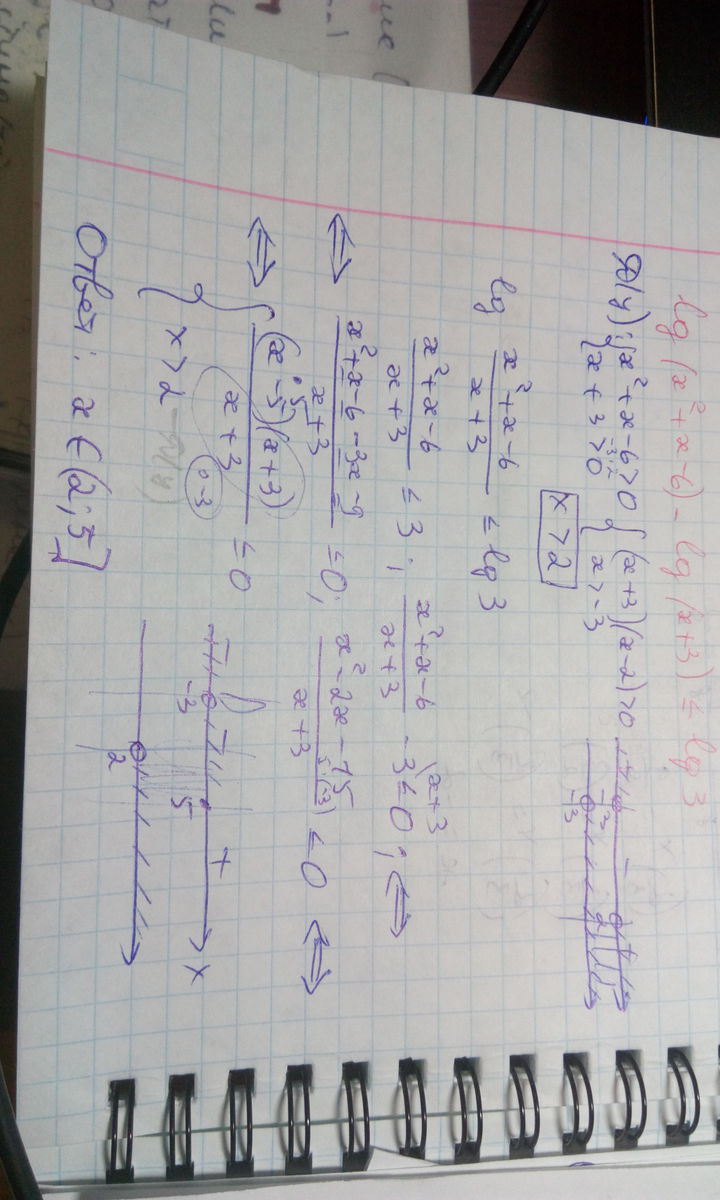 lg (x²+x-6) - lg (x+3) ≤ lg 3
{ x²+x-6>0 { (x+3)(x-2)>0
{ x+3>0 { x>-3
-3; 2
x>2
+ - +
-3 2
-3
lg (x²+x-6)/(x+3) ≤ lg 3
(x²+x-6)/(x+3) ≤ 3 ; (x²+x-6)/(x+3) - 3 ≤ 0 ; ⇔
x+3
⇔ (x²+x-6-3x-9)/(x+3) ≤ 0; (x²-2x-15)/(x+3) ≤ 0 ⇔
5·(-3)
⇔ { (x-5)(x+3)/(x+3) ≤ 0
{ x>2
-3 5 + x
2
Ответ: x ∈ (2; 5]